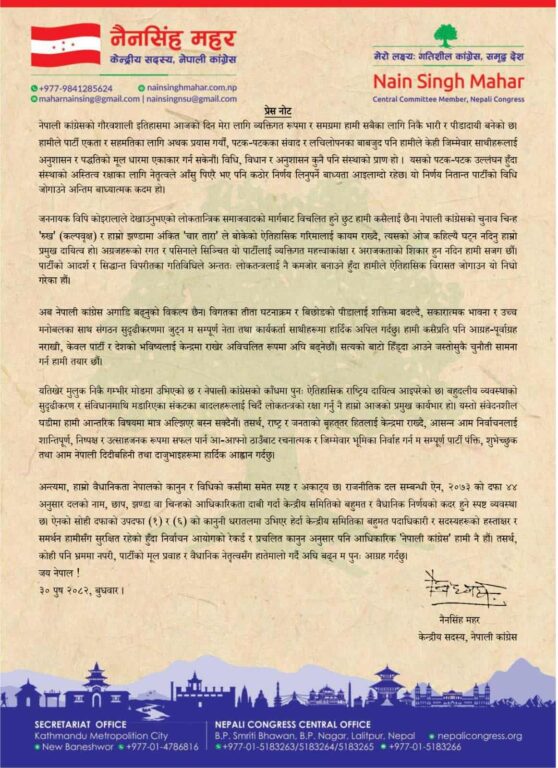 नैनसिंह महर
केन्द्रीय सदस्य, नेपाली कांग्रेस
+977-9841285624
nainsinghmahar.com.np
maharnainsing@gmail.com | nainsingnsu@gmail.com
मेरो लक्ष्यः गतिशील कांग्रेस, समृद्ध देश
Nain Singh Mahar
Central Committee Member, Nepali Congress
प्रेस नोट
नेपाली कांग्रेसको गौरवशाली इतिहासमा आजको दिन मेरा लागि व्यक्तिगत रूपमा र समग्रमा हामी सबैका लागि निकै भारी र पीडादायी बनेको छ।
हामीले पार्टी एकता र सहमतिका लागि अथक प्रयास गर्यौं, पटक-पटकका संवाद र लचिलोपनका बाबजुद पनि हामीले केही जिम्मेवार साथीहरूलाई
अनुशासन र पद्धतिको मूल धारमा एकाकार गर्न सकेनौं। विधि, विधान र अनुशासन कुनै पनि संस्थाको प्राण हो । यसको पटक-पटक उल्लंघन हुँदा
संस्थाको अस्तित्व रक्षाका लागि नेतृत्वले आँसु पिएरै भए पनि कठोर निर्णय लिनुपर्ने बाध्यता आइलाग्दो रहेछ। यो निर्णय नितान्त पार्टीको विधि
जोगाउने अन्तिम बाध्यात्मक कदम हो।
जननायक विपि कोइरालाले देखाउनुभएको लोकतान्त्रिक समाजवादको मार्गबाट विचलित हुने छुट हामी कसैलाई छैन। नेपाली कांग्रेसको चुनाव चिन्ह
'रुख' (कल्पवृक्ष) र हाम्रो झण्डामा अंकित 'चार तारा' ले बोकेको ऐतिहासिक गरिमालाई कायम राख्दै, त्यसको ओज कहिल्यै घट्न नदिनु हाम्रो
प्रमुख दायित्व हो। अग्रजहरूको रगत र पसिनाले सिञ्चित यो पार्टीलाई व्यक्तिगत महत्त्वाकांक्षा र अराजकताको शिकार हुन नदिन हामी सजग छौं।
पार्टीको आदर्श र सिद्धान्त विपरीतका गतिविधिले अन्ततः लोकतन्त्रलाई नै कमजोर बनाउने हुँदा हामीले ऐतिहासिक विरासत जोगाउन यो निधो
गरेका हौं।
अब नेपाली कांग्रेस अगाडि बढ्नुको विकल्प छैन। विगतका तीता घटनाक्रम र बिछोडको पीडालाई शक्तिमा बदल्दै, सकारात्मक भावना र उच्च
मनोबलका साथ संगठन सुदृढीकरणमा जुट्न म सम्पूर्ण नेता तथा कार्यकर्ता साथीहरूमा हार्दिक अपिल गर्दछु। हामी कसैप्रति पनि आग्रह-पूर्वाग्रह
नराखी, केवल पार्टी र देशको भविष्यलाई केन्द्रमा राखेर अविचलित रूपमा अघि बढ्नेछौं। सत्यको बाटो हिँड्दा आउने जस्तोसुकै चुनौती सामना
गर्न हामी तयार छौं।
यतिखेर मुलुक निकै गम्भीर मोडमा उभिएको छ र नेपाली कांग्रेसको काँधमा पुनः ऐतिहासिक राष्ट्रिय दायित्व आइपरेको छ। बहुदलीय व्यवस्थाको
सुदृढीकरण र संविधानमाथि मडारिएका संकटका बादलहरूलाई चिर्दै लोकतन्त्रको रक्षा गर्नु नै हाम्रो आजको प्रमुख कार्यभार हो। यस्तो संवेदनशील
घडीमा हामी आन्तरिक विषयमा मात्र अल्झिएर बस्न सक्दैनौं। तसर्थ, राष्ट्र र जनताको बृहत्तर हितलाई केन्द्रमा राख्दै, आसन्न आम निर्वाचनलाई
शान्तिपूर्ण, निष्पक्ष र उत्साहजनक रूपमा सफल पार्न आ-आफ्नो ठाउँबाट रचनात्मक र जिम्मेवार भूमिका निर्वाह गर्न म सम्पूर्ण पार्टी पंक्ति, शुभेच्छुक
तथा आम नेपाली दिदीबहिनी तथा दाजुभाइहरूमा हार्दिक आह्वान गर्दछु।
अन्त्यमा, हाम्रो वैधानिकता नेपालको कानुन र विधिको कसीमा समेत स्पष्ट र अकाट्य छ। राजनीतिक दल सम्बन्धी ऐन, २०७३ को दफा ४४
अनुसार दलको नाम, छाप, झण्डा वा चिन्हको आधिकारिकता दाबी गर्दा केन्द्रीय समितिको बहुमत र वैधानिक निर्णयको कदर हुने स्पष्ट व्यवस्था
छ। ऐनको सोही दफाको उपदफा (१) र (६) को कानुनी धरातलमा उभिएर हेर्दा केन्द्रीय समितिका बहुमत पदाधिकारी र सदस्यहरूको हस्ताक्षर र
समर्थन हामीसँग सुरक्षित रहेको हुँदा निर्वाचन आयोगको रेकर्ड र प्रचलित कानुन अनुसार पनि आधिकारिक 'नेपाली कांग्रेस' हामी नै हौं। तसर्थ,
कोही पनि भ्रममा नपरी, पार्टीको मूल प्रवाह र वैधानिक नेतृत्वसँग हातेमालो गर्दै अघि बढ्न म पुनः आग्रह गर्दछु।
जय नेपाल !
३० पुष २०८२, बुधवार ।
नैनसिंह महर
केन्द्रीय सदस्य, नेपाली कांग्रेस
SECRETARIAT OFFICE
Kathmandu Metropolition City
New Baneshwor +977-01-4786816
NEPALI CONGRESS CENTRAL OFFICE
B.P. Smriti Bhawan, B.P. Nagar, Lalitpur, Nepal nepalicongress.org
+977-01-5183263/5183264/5183265 +977-01-5183266